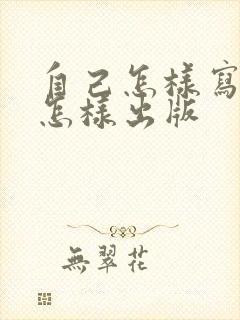 自己怎樣寫
怎樣出版
無翠花